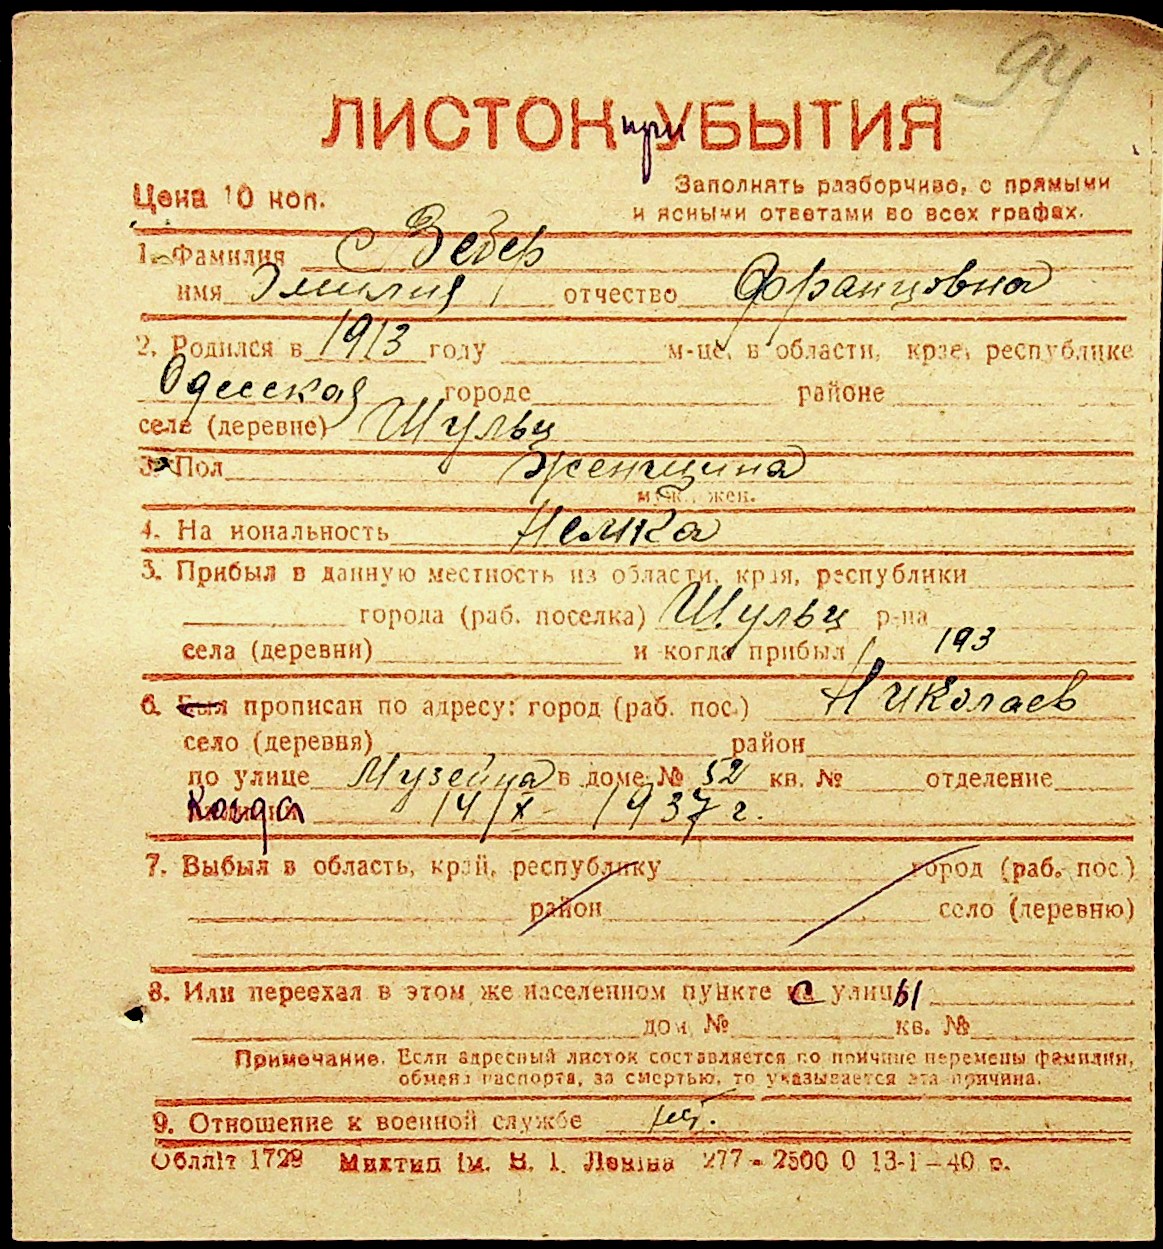 94
ЛИСТОК при УБЫТИЯ
Цена 10 коп.
Заполнять разборчиво, с прямыми
и ясными ответами во всех графах.
1. Фамилия Вебер
имя Эмилия отчество Францовна
2. Родился в 1913 году м-це, в области, крае, республике
Одесская городе районе
селе (деревне) Шульц
3. Пол женщина
муж., жен.
4. На иональность Немка
5. Прибыл в данную местность из области, края, республики
города (раб. поселка) Шульц р-на
села (деревни) и когда прибыл 193
6. Был прописан по адресу: город (раб. пос.) Николаев
село (деревня) район
по улице Музейная в доме № 52 кв. № отделение
Когда 14/X - 1937 г.
7. Выбыл в область, край, республику город (раб. пос.)
район село (деревню)
8. Или переехал в этом же населенном пункте с улицы
дом № кв. №
Примечание. Если адресный листок составляется по причине перемены фамилии,
обмена паспорта, за смертью, то указывается эта причина.
9. Отношение к военной службе нет.
Облліт 1729 Миктип ім. В. І. Леніна 277 - 2500 0 13-1-40 р.